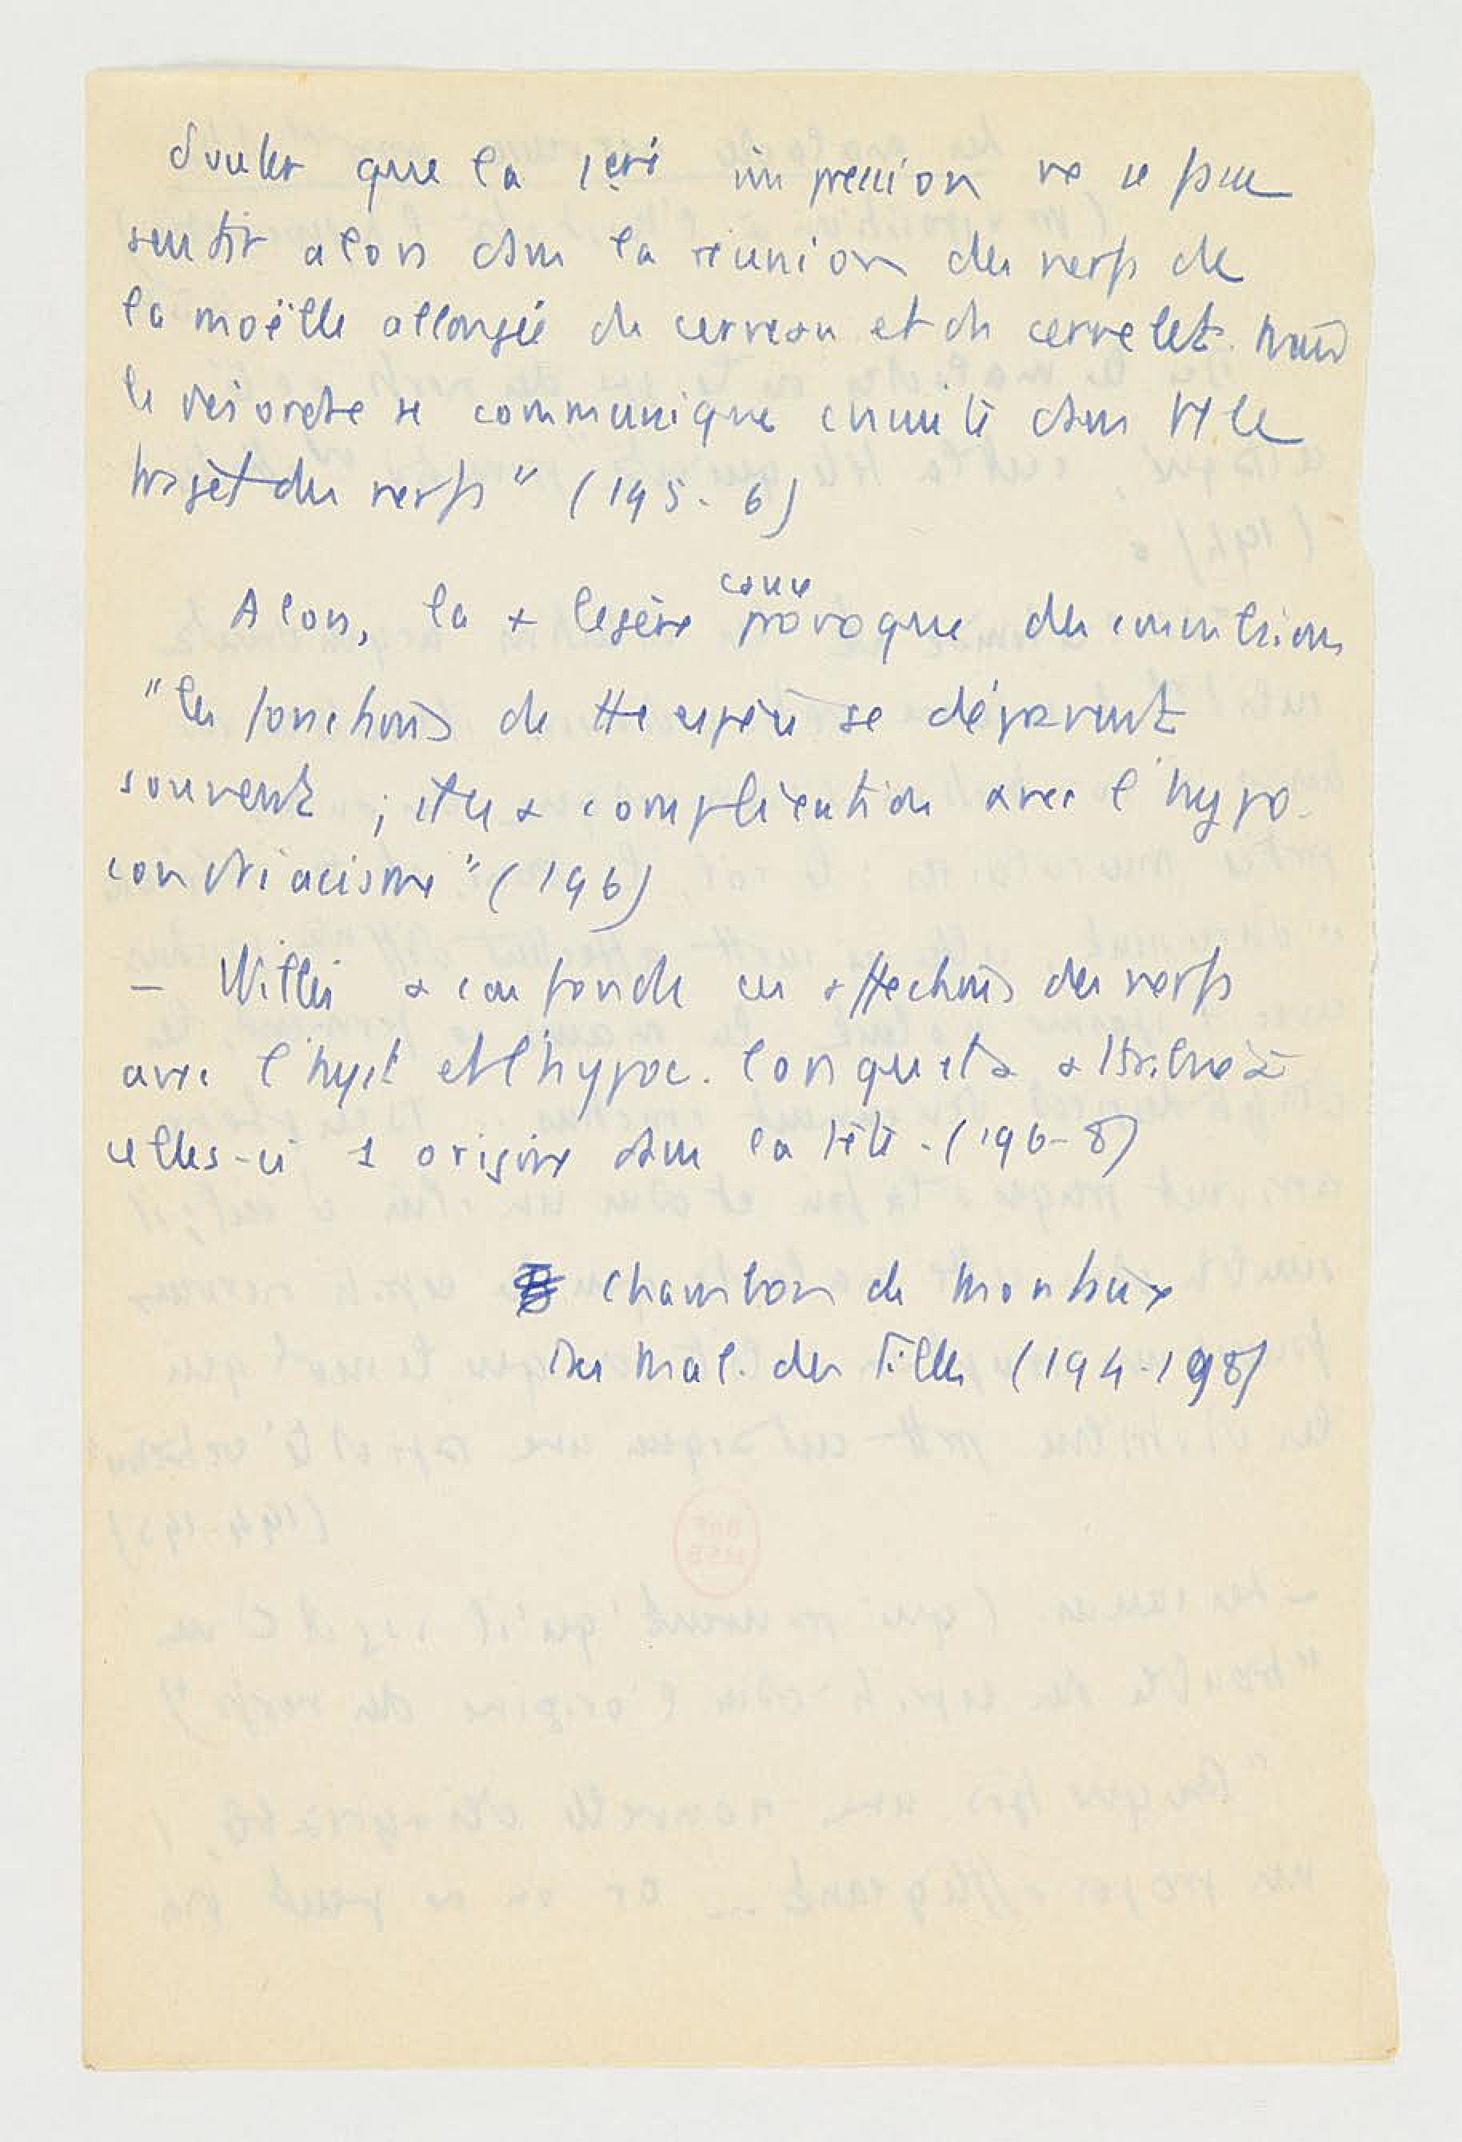 douter que la 1ère impression ne se fasse
sentir alors dans la réunion des nerfs de
la moëlle allongée du cerveau et du cervelet. Mais
le désordre se communique ensuite dans tt le
trajet des nerfs" (195-6)
Alors, la + legère cause provoque des convulsions
"les fonctions de tte espèce se dépravent
souvent ; et il y a complication avec l'hypo-
condriacisme" (196)
– Willis a confondu ces affections des nerfs
avec l'hyst et l'hypoc. lorsqu'il a attribué à
celles-ci 1 origine dans la tête. (196-8)
Chambon de Montaux
Des Mal. des filles (194-198)